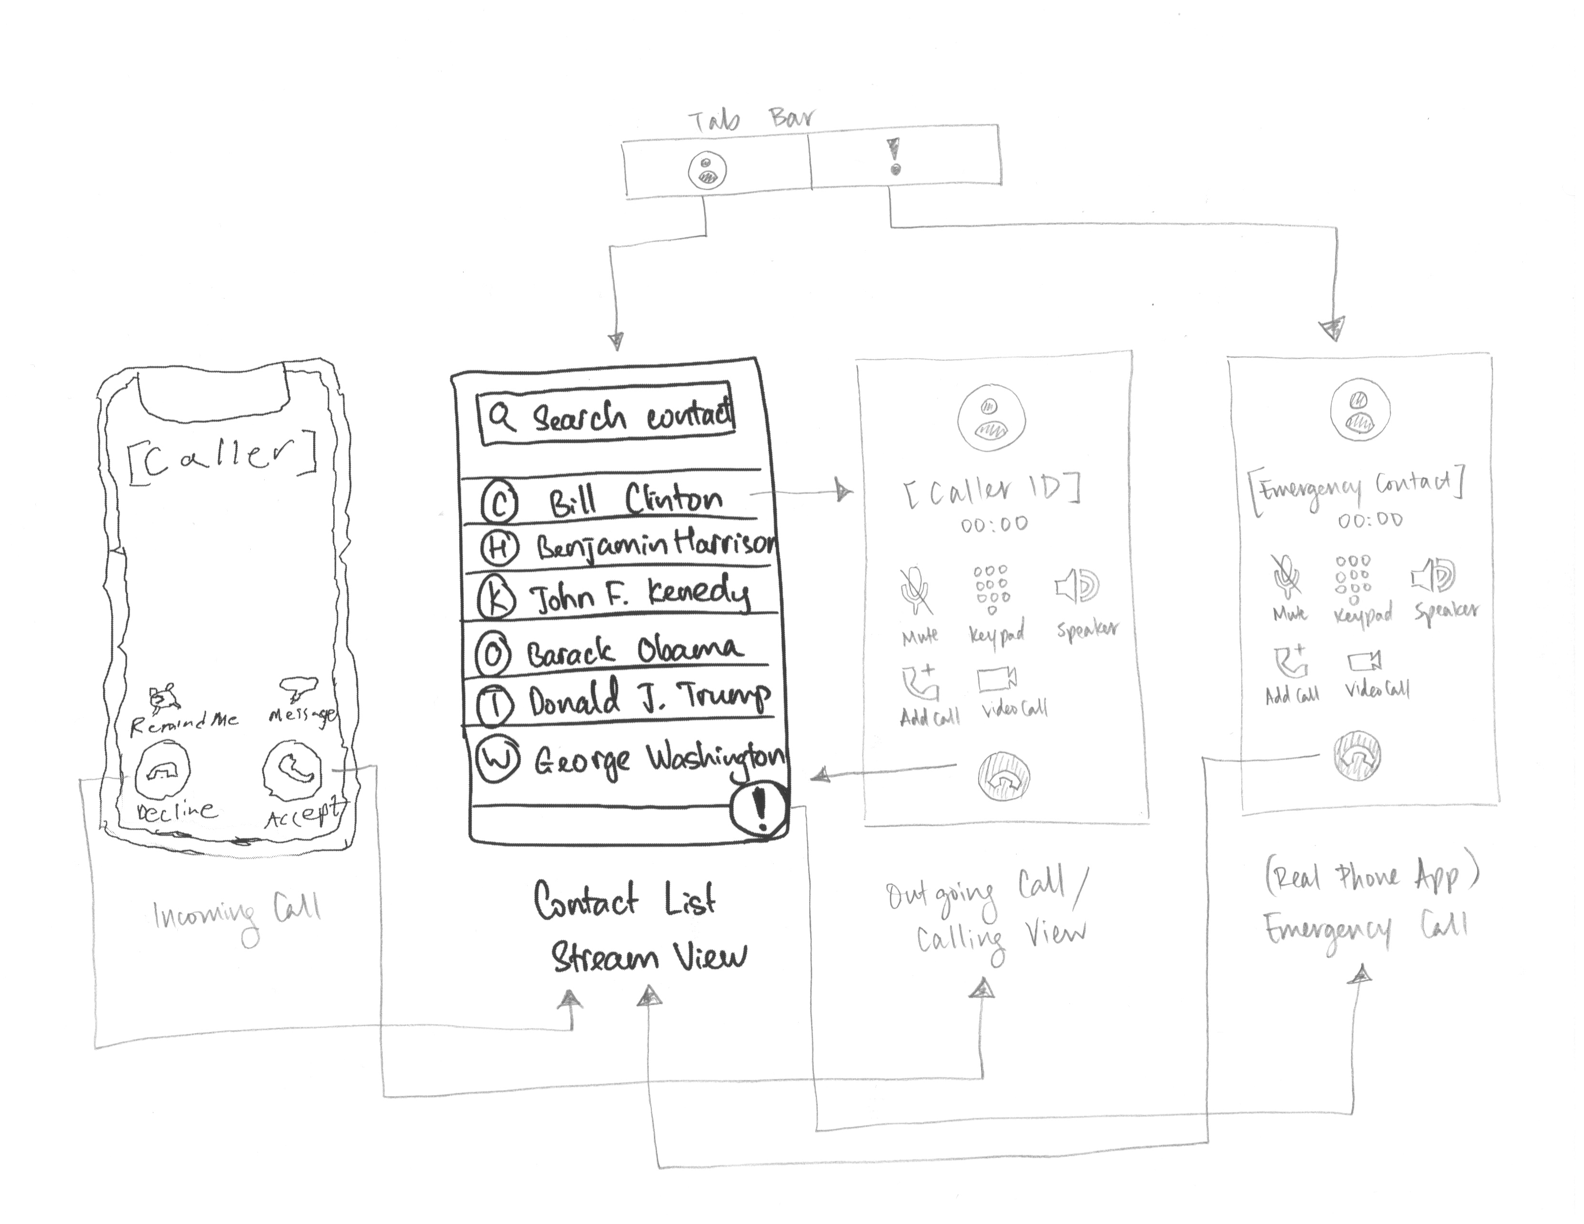 Tab Bar
[Caller]
Remind Me
Message
Decline
Accept
Incoming Call
Search contact
C Bill Clinton
H Benjamin Harrison
K John F. Kenedy
O Barack Obama
T Donald J. Trump
W George Washington
!
Contact List
Stream View
[Caller ID]
00:00
Mute
Keypad
Speaker
Add Call
Video Call
Outgoing Call/
Calling View
[Emergency Contact]
00:00
Mute
Keypad
Speaker
Add Call
Video Call
(Real Phone App)
Emergency Call